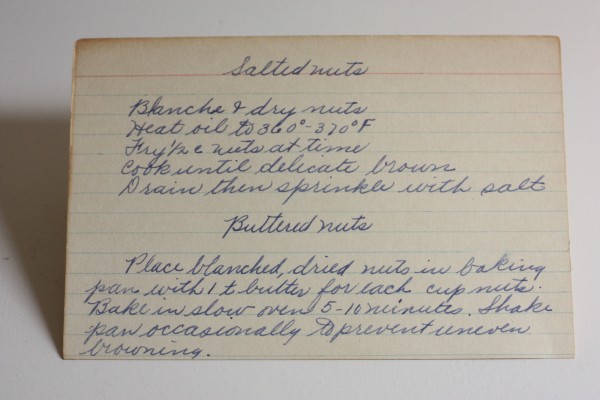 Salted nuts
Blanche & dry nuts
Heat oil to 360°-370°F
Fry 1/2 c nuts at time
Cook until delicate brown
Drain then sprinkle with salt
Buttered nuts
Place blanched, dried nuts in baking
pan with 1 t butter for each cup nuts.
Bake in slow oven 5-10 minutes. Shake
pan occasionally to prevent uneven
browning.